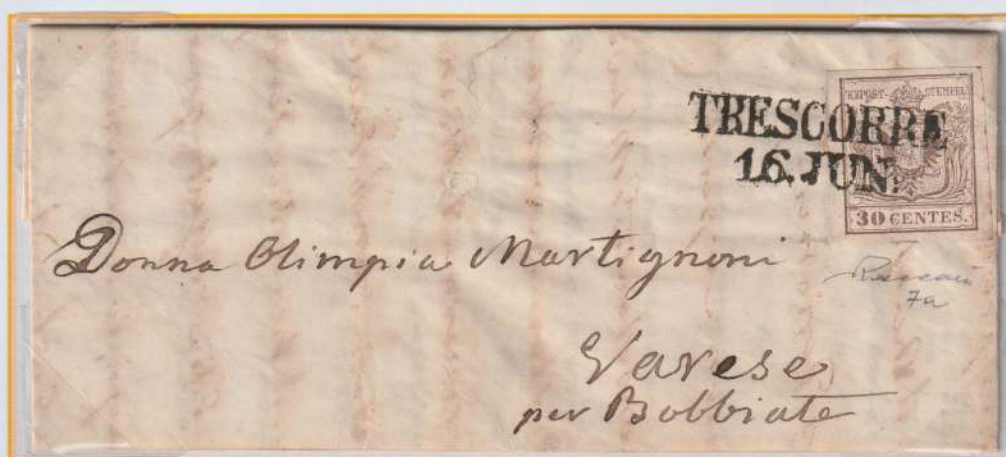 TRESCORRE
16. JUN.
KKPOST- STEMPEL
30 CENTES.
Donna Olimpia Martignoni
7a
Varese
per Bobbiate